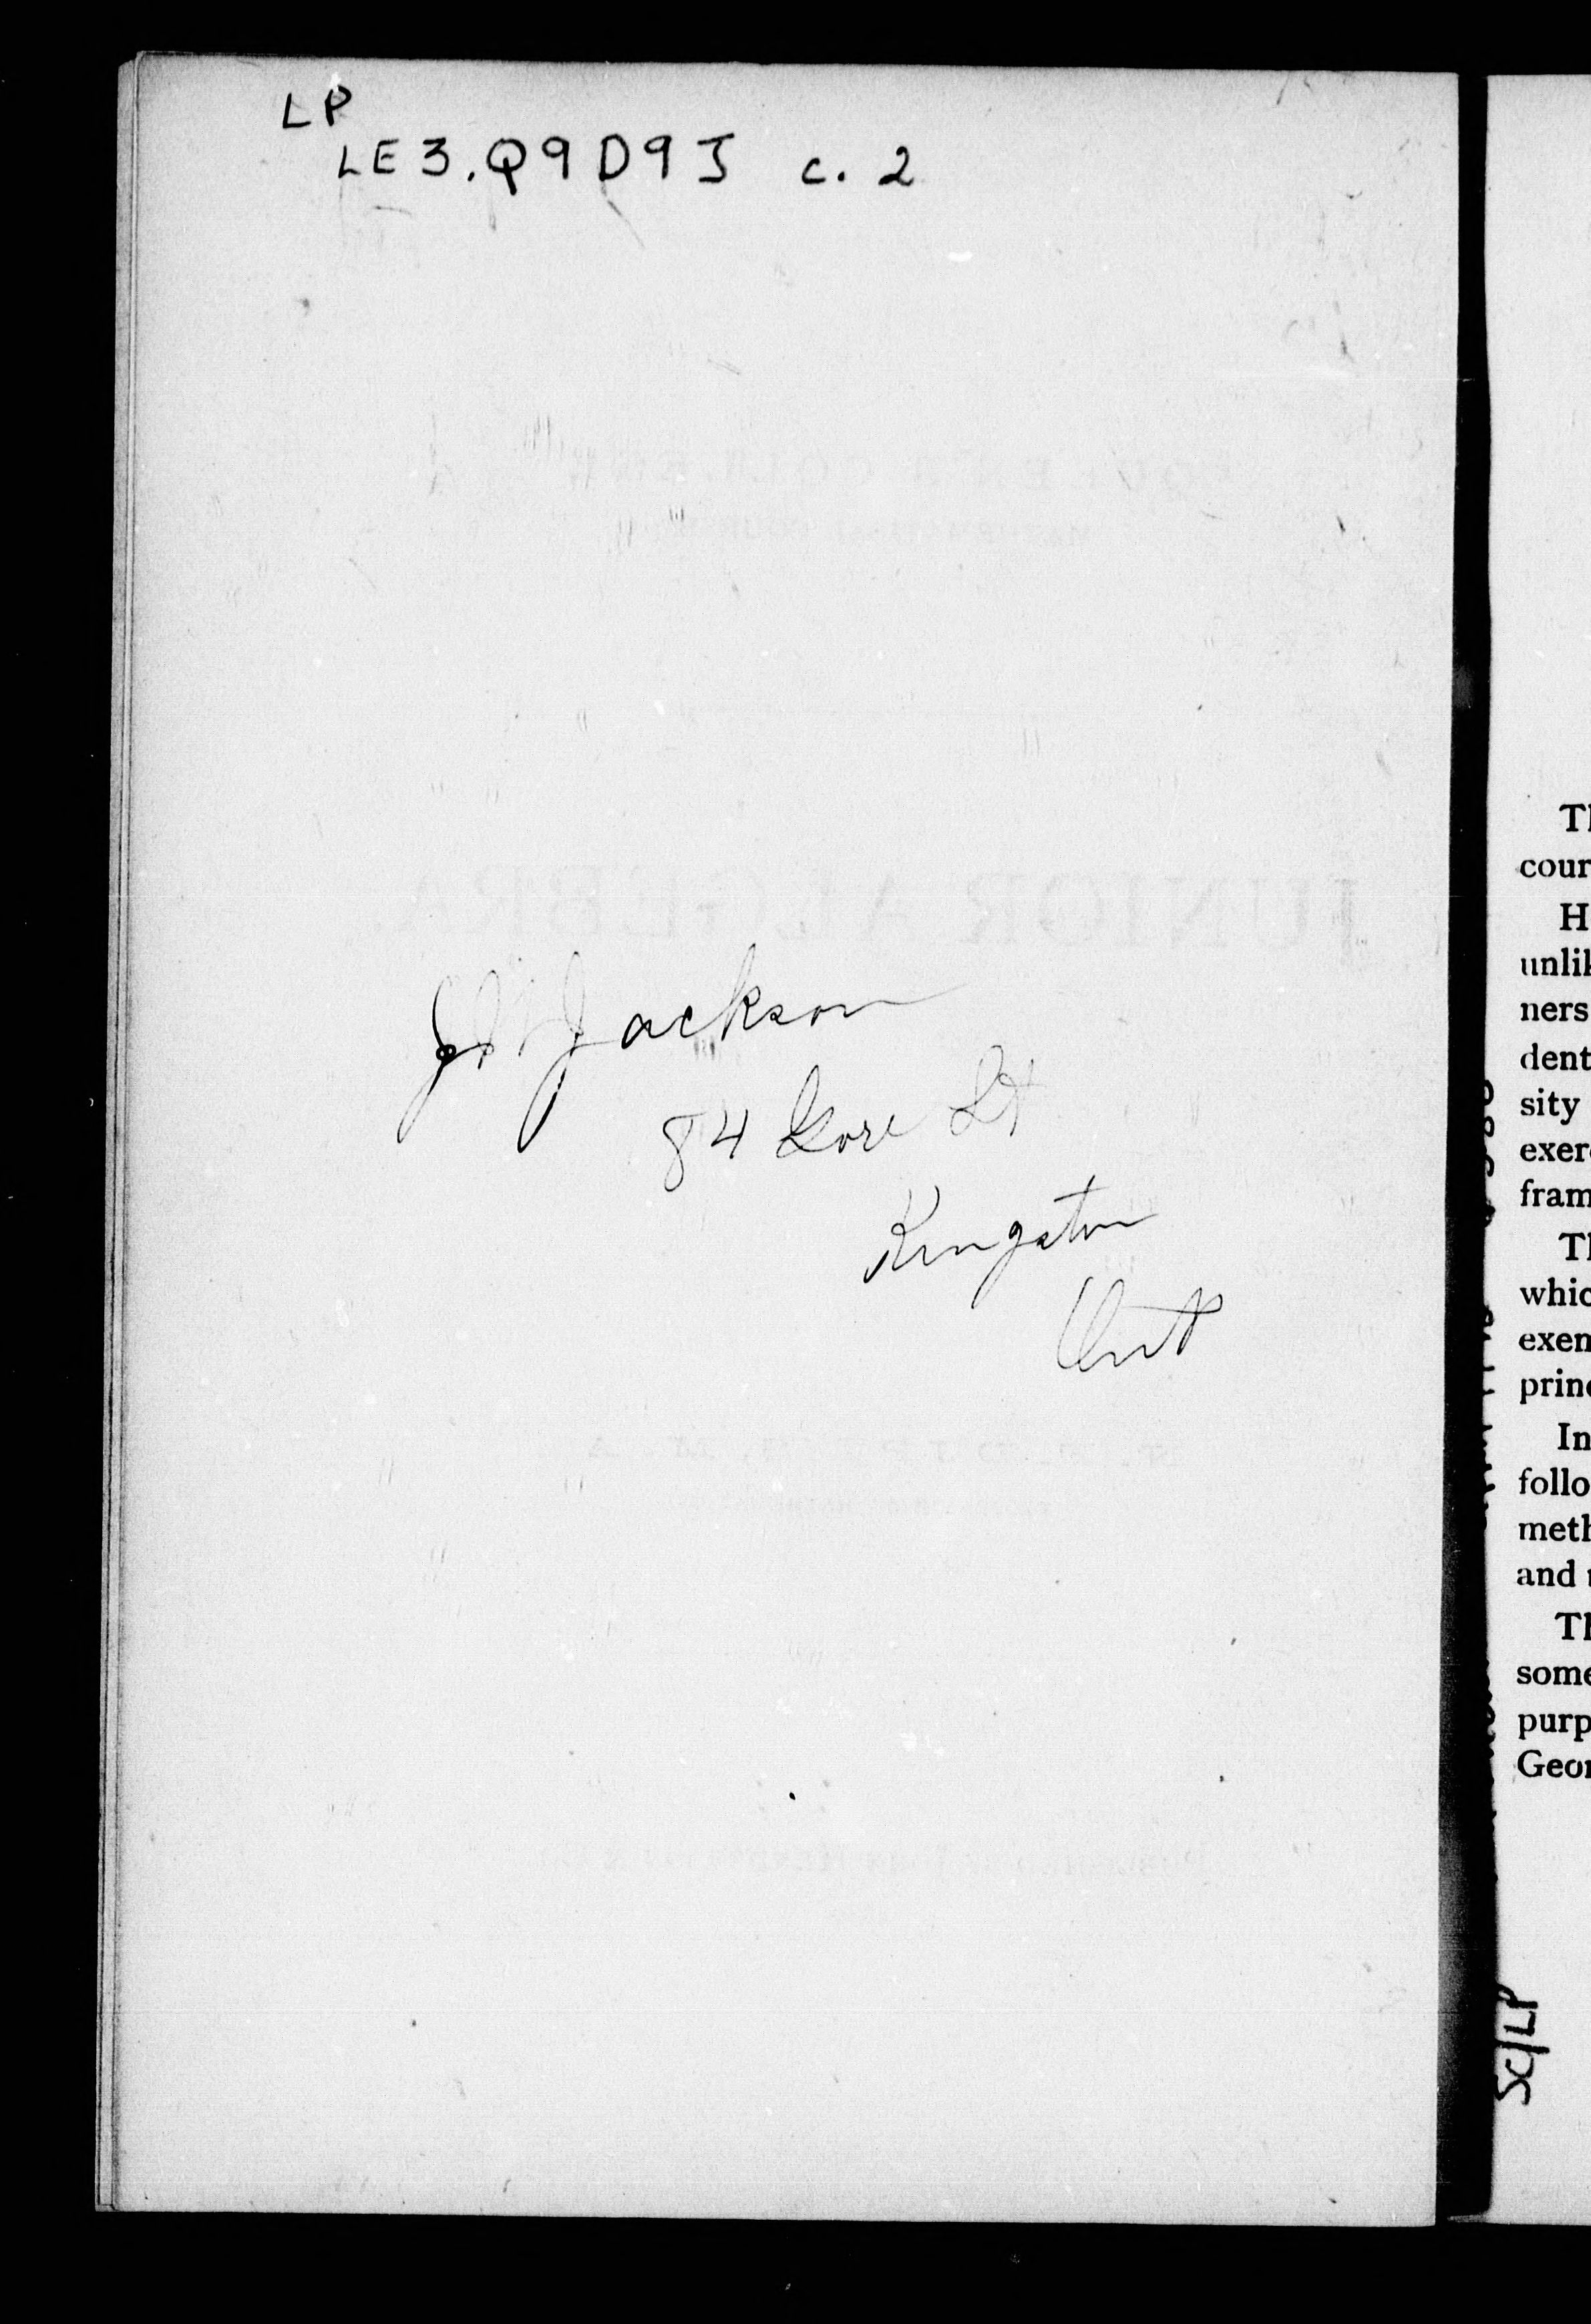 LP
LE3.Q9D9J c. 2
JUNIOR ALGEBRA
Jackson
84 Gore St
Kingston
Ont
Th
cour
H
unlik
ners
dent
sity
exer
fram
Th
whic
exem
princ
In
follo
meth
and
Th
some
purp
Geor
SC/LP